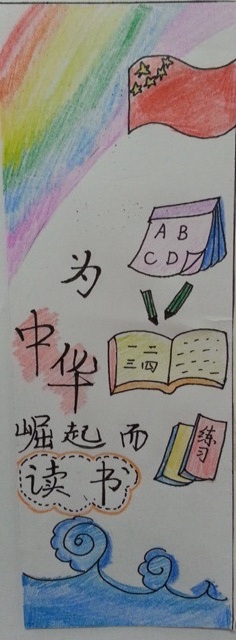 A B
C D
为
中
华
一二
三四
崛起而
读书
练习